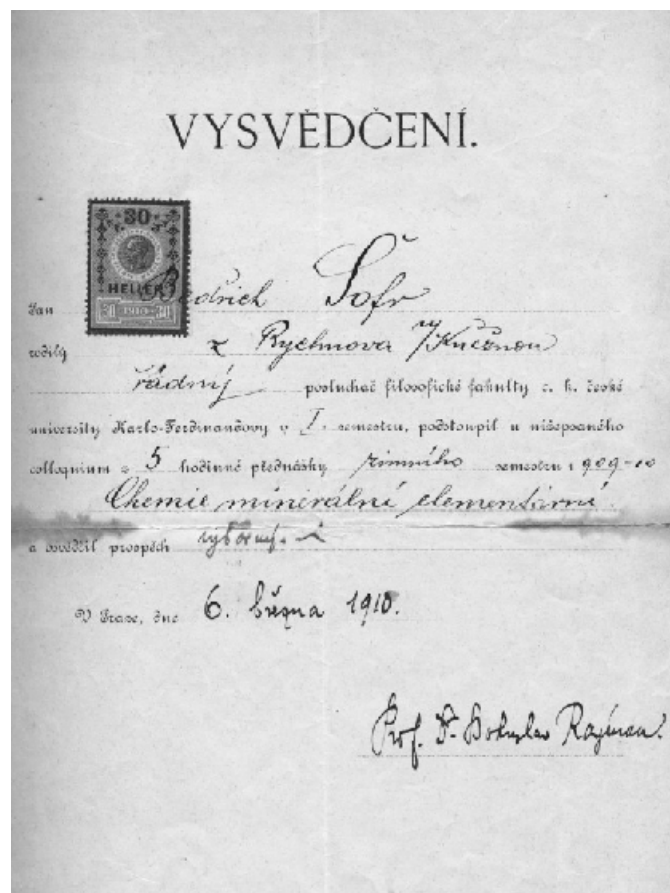 VYSVĚDČENÍ.
30
HELLER
30 1910 30
Pan Bedřich Šofr
rodilý z Rychnova n/Kněžnou
řádný posluchač filosofické fakulty c. k. české
university Karlo-Ferdinandovy v I. semestru, podstoupil u nížepsaného
colloquium z 5 hodinné přednášky zimního semestru 1909-10
Chemie minerální elementární
a osvědčil prospěch výborný.
V Praze, dne 6. března 1910.
Prof. Dr. Bohuslav Raýman.